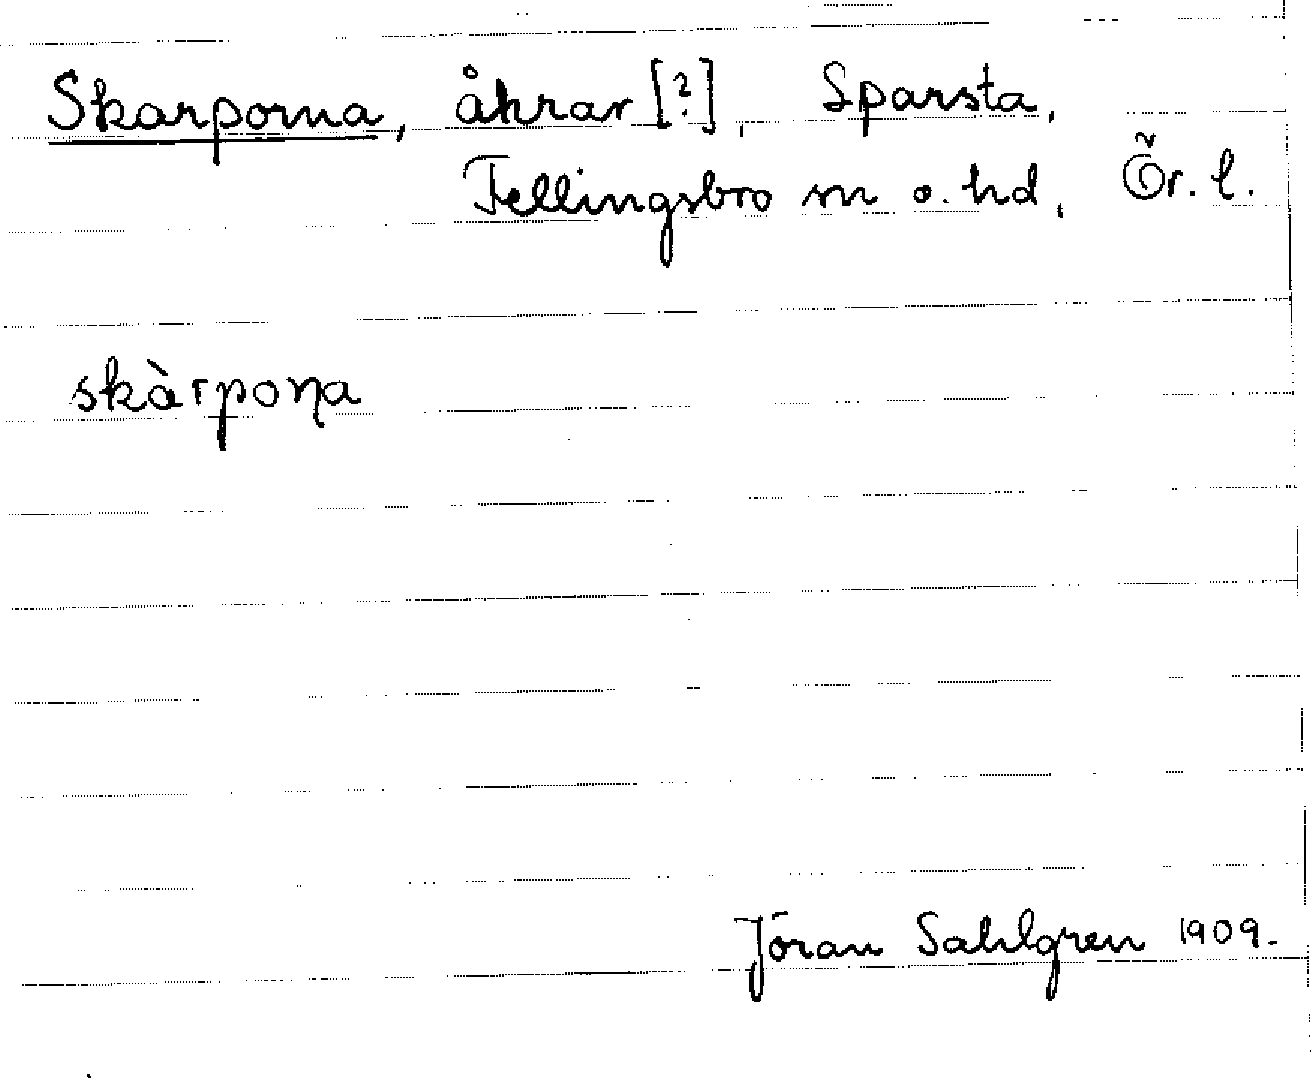 Skarporna, åkrar [?], Sparsta,
Fellingsbro sn o. hd, Ör. l.
skàrpoṇa
Jöran Sahlgren 1909.